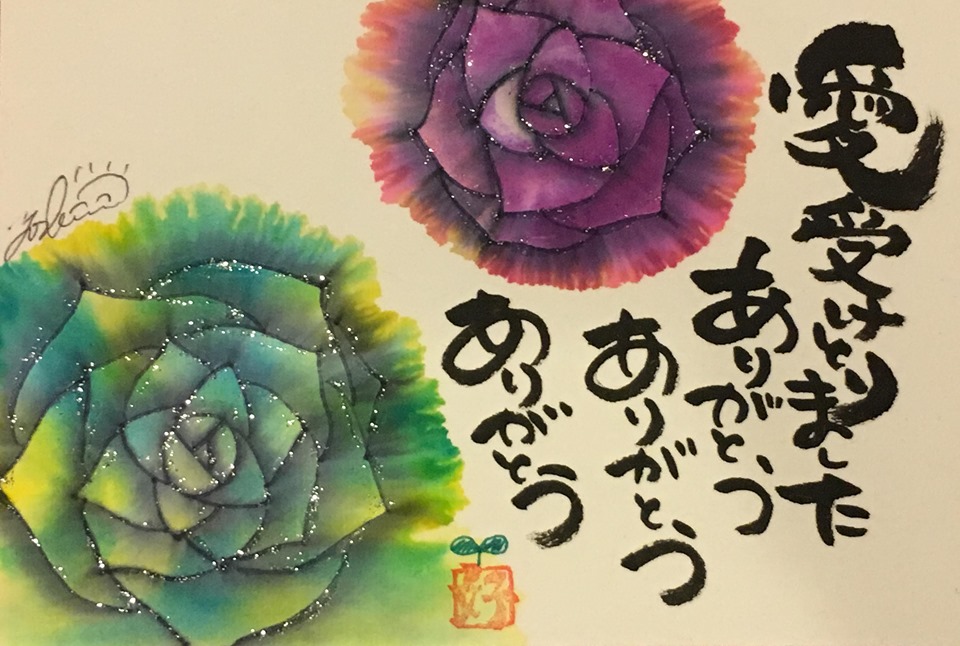 愛受けとりました
ありがとう
ありがとう
ありがとう
好